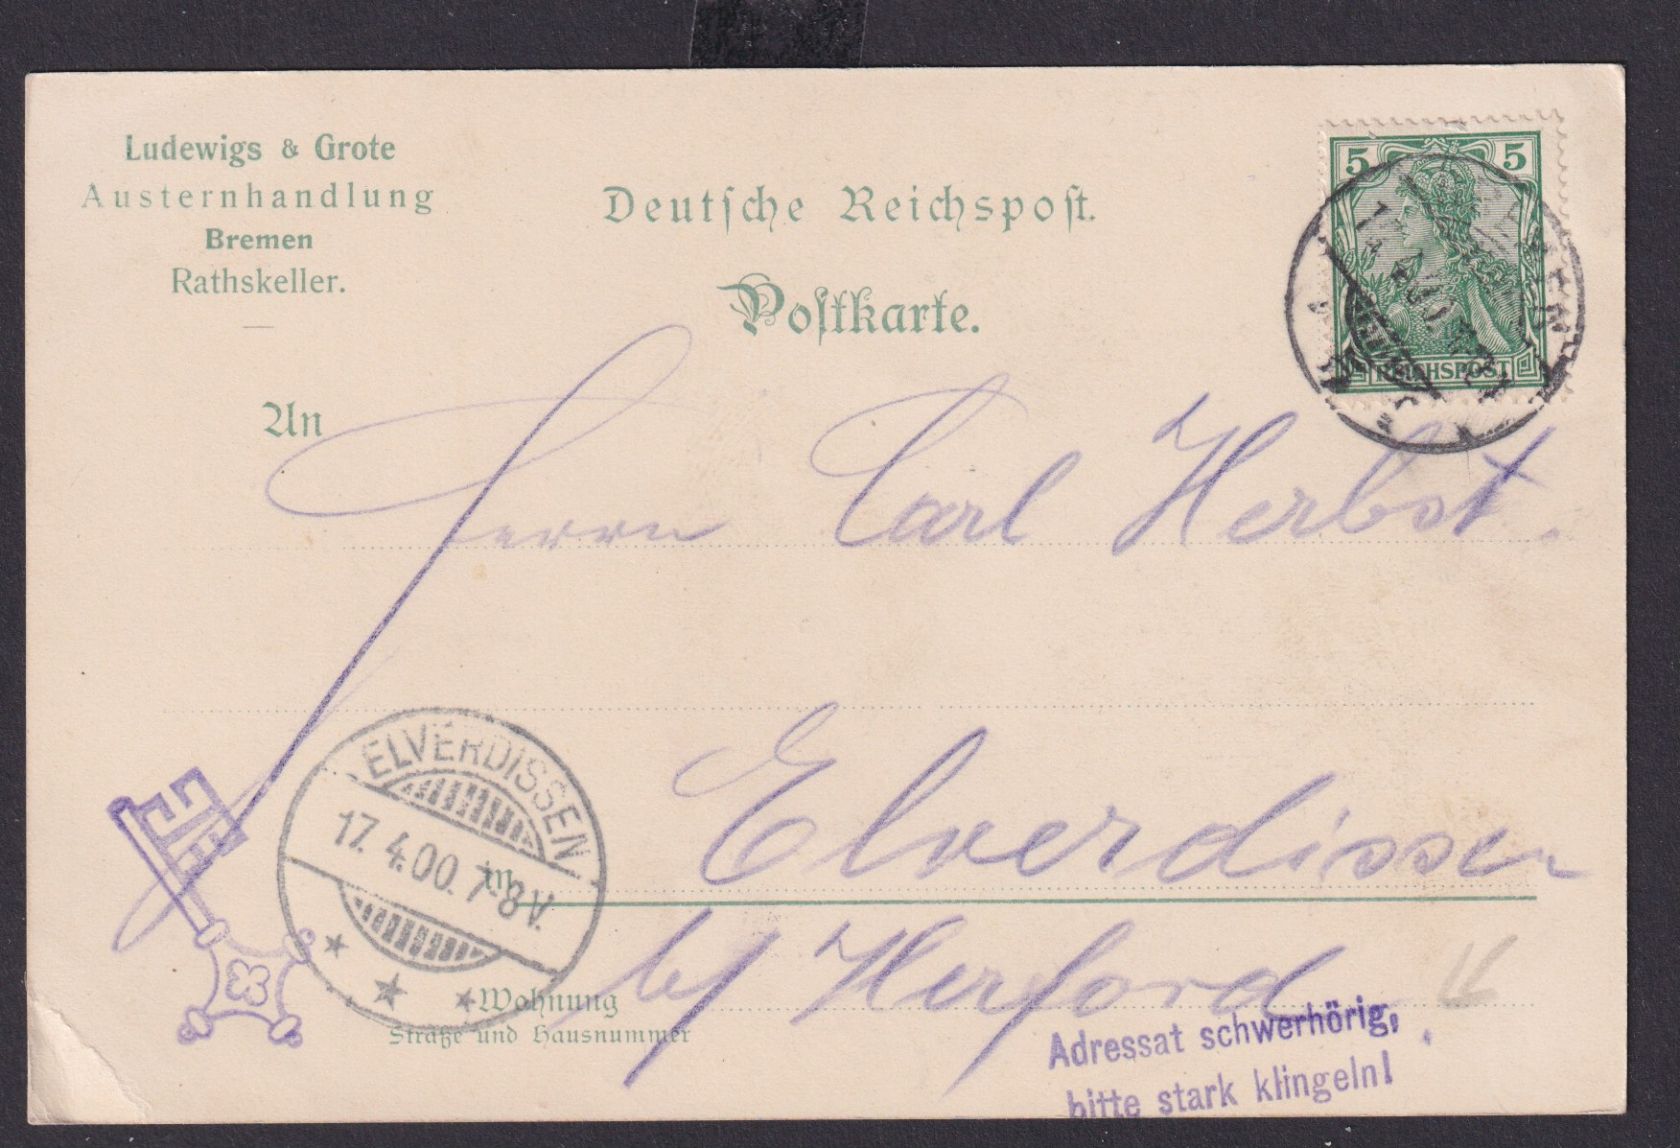 Ludewigs & Grote
Austernhandlung
Bremen
Rathskeller.
Deutsche Reichspost.
Postkarte.
5 5
REICHSPOST
BREMEN
An
Herrn Carl Herbst.
ELVERDISSEN
17. 4.00. 7-8 V.
in
Elverdissen
b/ Herford
Wohnung
Straße und Hausnummer
Adressat schwerhörig,
bitte stark klingeln!